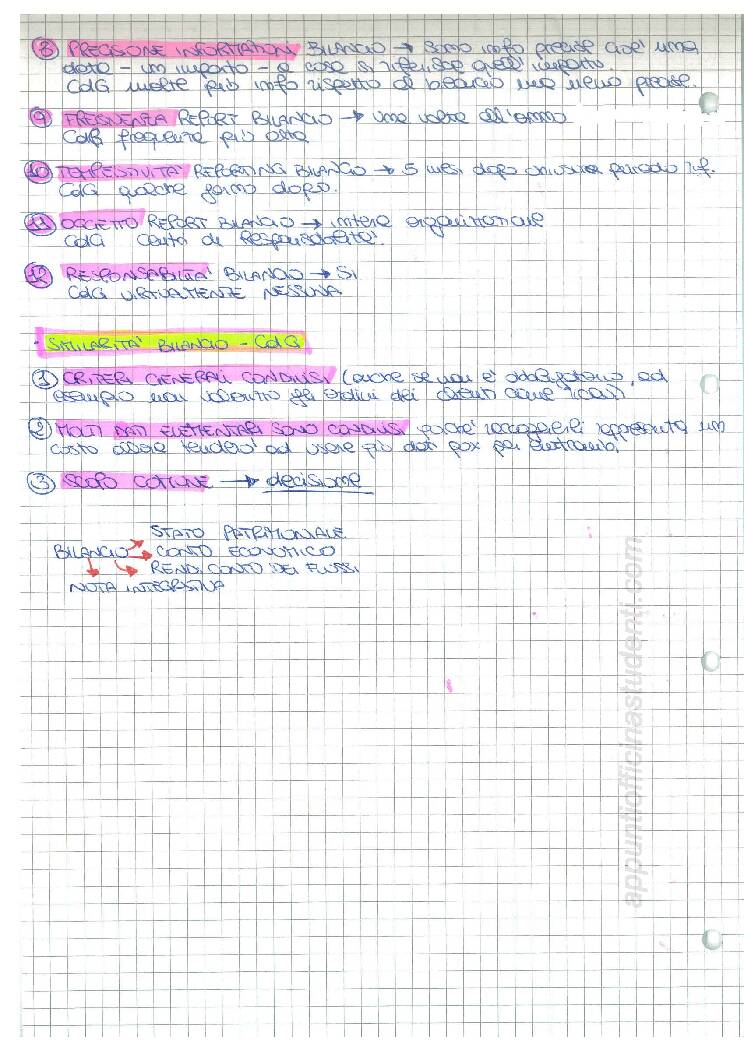 8 PRECISIONE INFORMAZIONI BILANCIO → sono info precise cioè una
data - un importo - a cosa si riferisce quell'importo.
CdG molte più info rispetto al bilancio ma meno precise.
9 FREQUENZA REPORT BILANCIO → una volta all'anno
CdG frequenza più alta
10 TEMPESTIVITA' REPORTING BILANCIO → 5 mesi dopo chiusura periodo rif.
CdG qualche giorno dopo.
11 OGGETTO REPORT BILANCIO → intera organizzazione
CdG Centri di Responsabilità.
12 RESPONSABILITA' BILANCIO → SI
CdG VIRTUALMENTE NESSUNA
· SIMILARITA' BILANCIO - CdG
1 CRITERI GENERALI CONDIVISI (anche se non è obbligatorio, ad
esempio non gli ordini dei clienti come ricavi)
2 MOLTI DATI ELEMENTARI SONO CONDIVISI poiché raccoglierli rappresenta un
costo allora tenderò ad usare più dati pox per entrambi.
3 SCOPO COMUNE → decisione
STATO PATRIMONIALE
BILANCIO → CONTO ECONOMICO
RENDICONTO DEI FLUSSI
NOTA INTEGRATIVA
appuntiofficinastudenti.com